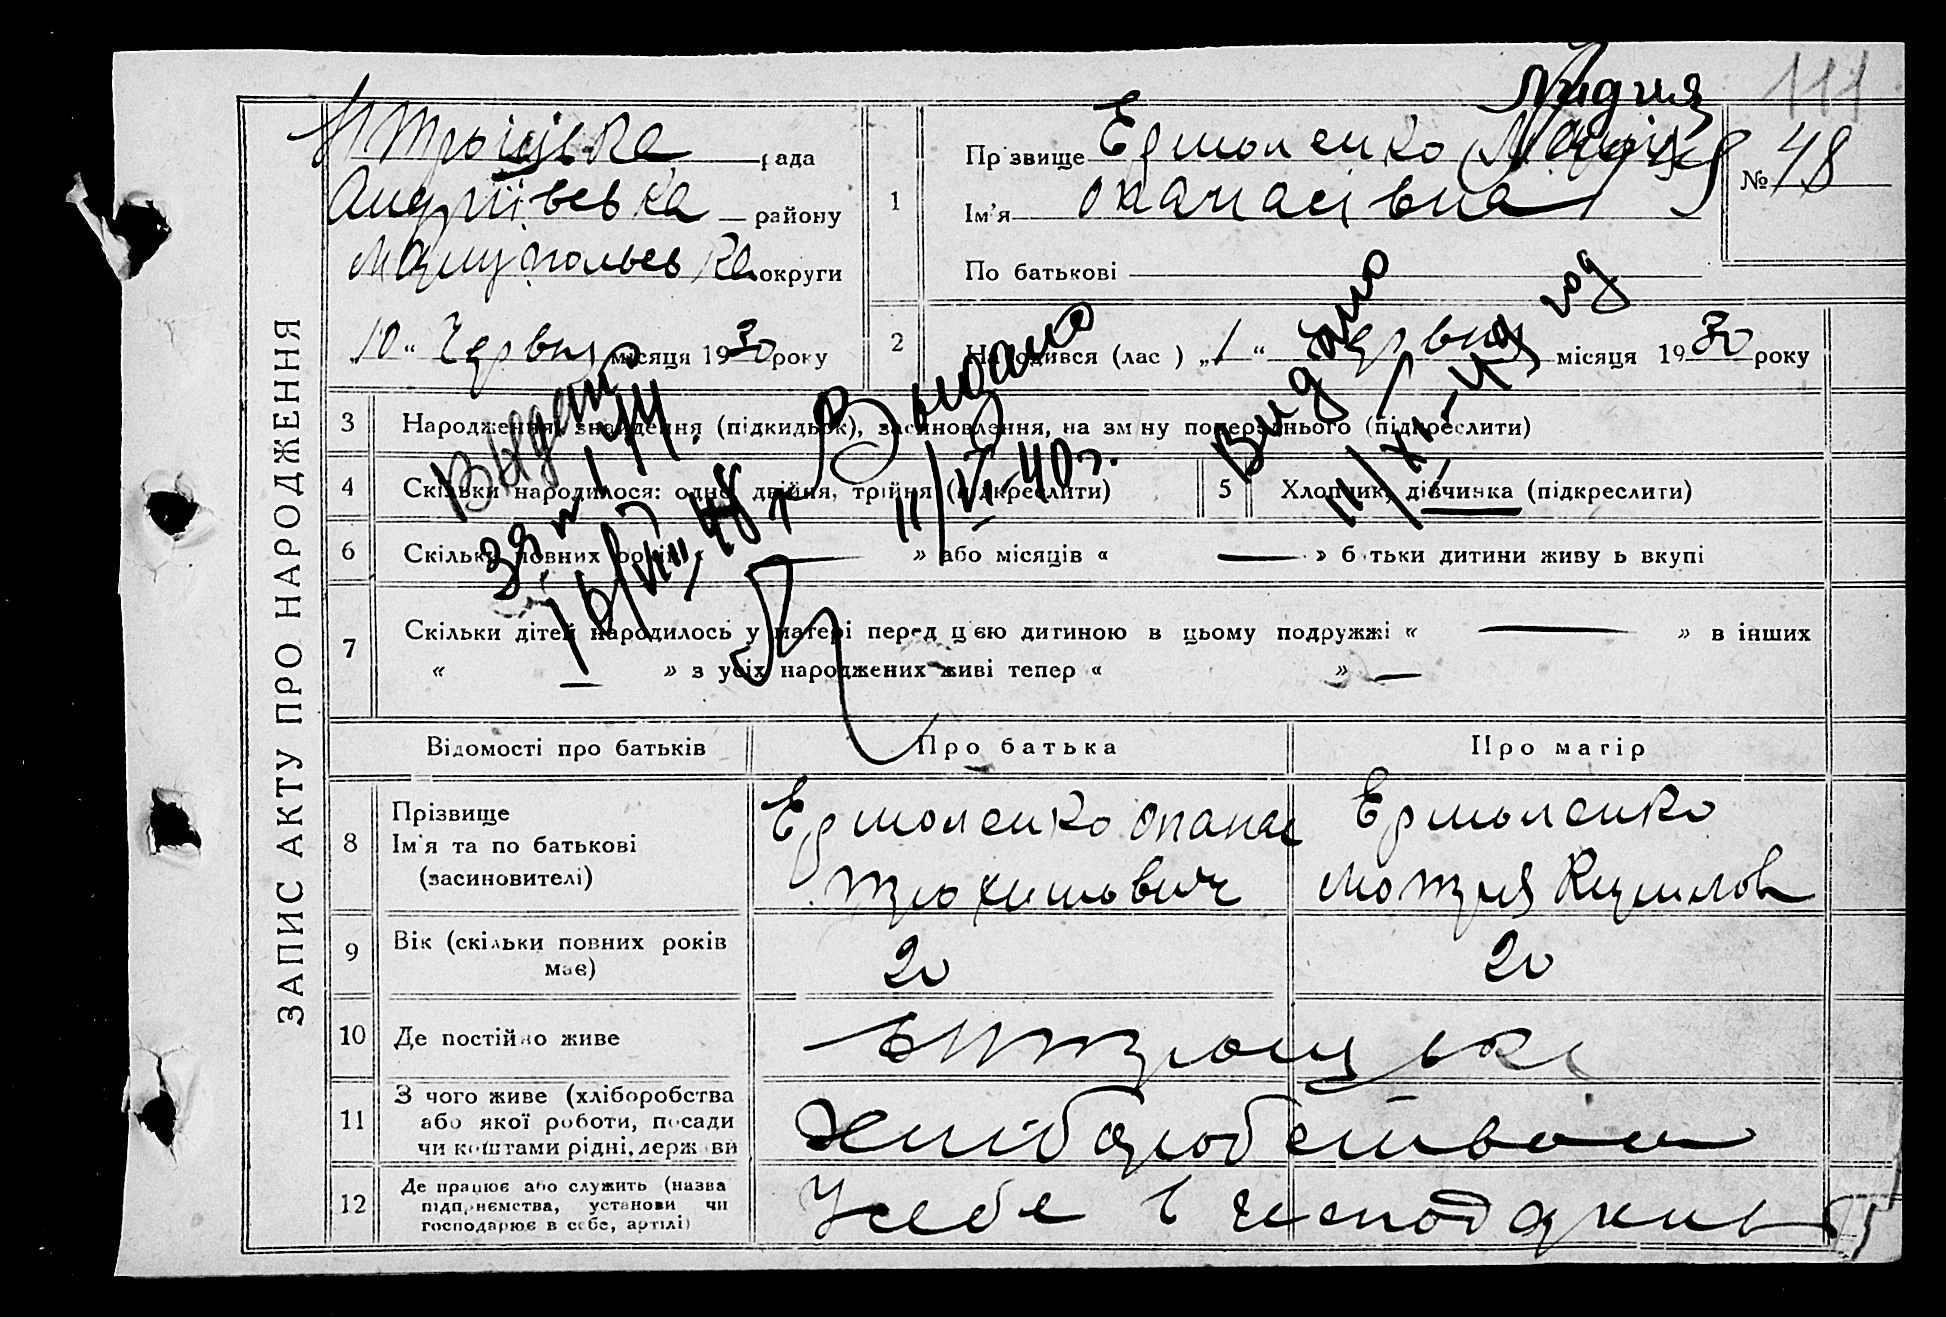 111
Лидия
Н Троїцька рада
Андріївська району
Маріупольська округи
„10“ Червня місяця 1930 року
1
Прізвище Ермоленко
Ім'я Опанасівна
По батькові
№ 48
2
Народився (лас ) „1“ Червня місяця 1930 року
ЗАПИС АКТУ ПРО НАРОДЖЕННЯ
3 Народження, знайдення (підкидьок), засиновлення, на зміну попереднього (підкреслити)
4 Скільки народилося: одно, двійня, трійня (підкреслити)
5 Хлопчик, дівчинка (підкреслити)
6 Скільки повних років « — » або місяців « — » батьки дитини живуть вкупі
7 Скільки дітей народилось у матері перед цією дитиною в цьому подружжі « — » в інших
« — » з усіх народжених живі тепер « » —
Выдано
11/VI-40 г.
Видано
11/XI-
год
Відомості про батьків
Про батька
Про матір
8 Прізвище
Ім'я та по батькові
(засиновителі)
Ермоленко Опанас
Трохимович
Ермоленко
Мотря Кирилов
9 Вік (скільки повних років
має)
20
20
10 Де постійно живе
Н Троицьке
11 З чого живе (хліборобства
або якої роботи, посади
чи коштами рідні, держави
Хліборобством
12 Де працює або служить (назва
підприємства, установи чи
господарює в себе, артілі)
У себе в господарстві